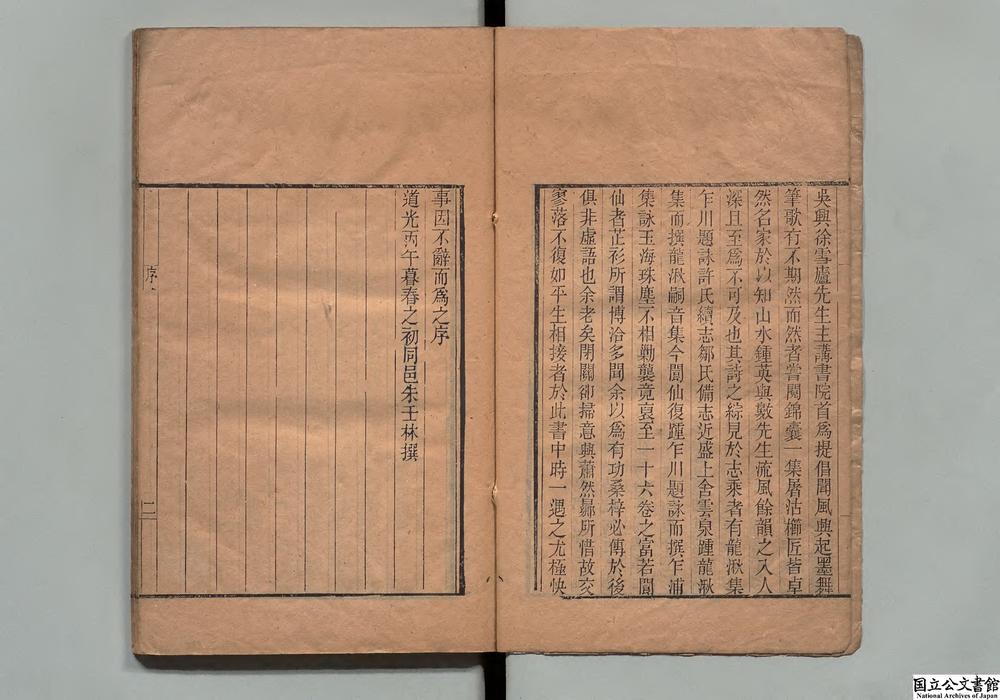 吳興徐雪廬先生主講書院首爲提倡聞風興起墨舞
筆歌有不期然而然者嘗閱錦囊一集屠沽櫛匠皆卓
然名家於以知山水鍾英與數先生流風餘韻之入人
深且至爲不可及也其詩之綜見於志乘者有龍湫集
乍川題詠許氏續志鄒氏備志近盛上舍雲泉踵龍湫
集而撰龍湫嗣音集今聞仙復踵乍川題詠而撰乍浦
集詠玉海珠塵不相勦襲竟裒至一十六卷之富若聞
仙者芷衫所謂博洽多聞余以爲有功桑梓必傳於後
俱非虛語也余老矣閉關卻掃意興蕭然曩所惜故交
寥落不復如平生相接者於此書中時一遇之尤極快
事因不辭而爲之序
道光丙午暮春之初同邑朱壬林撰
序
二
国立公文書館
National Archives of Japan